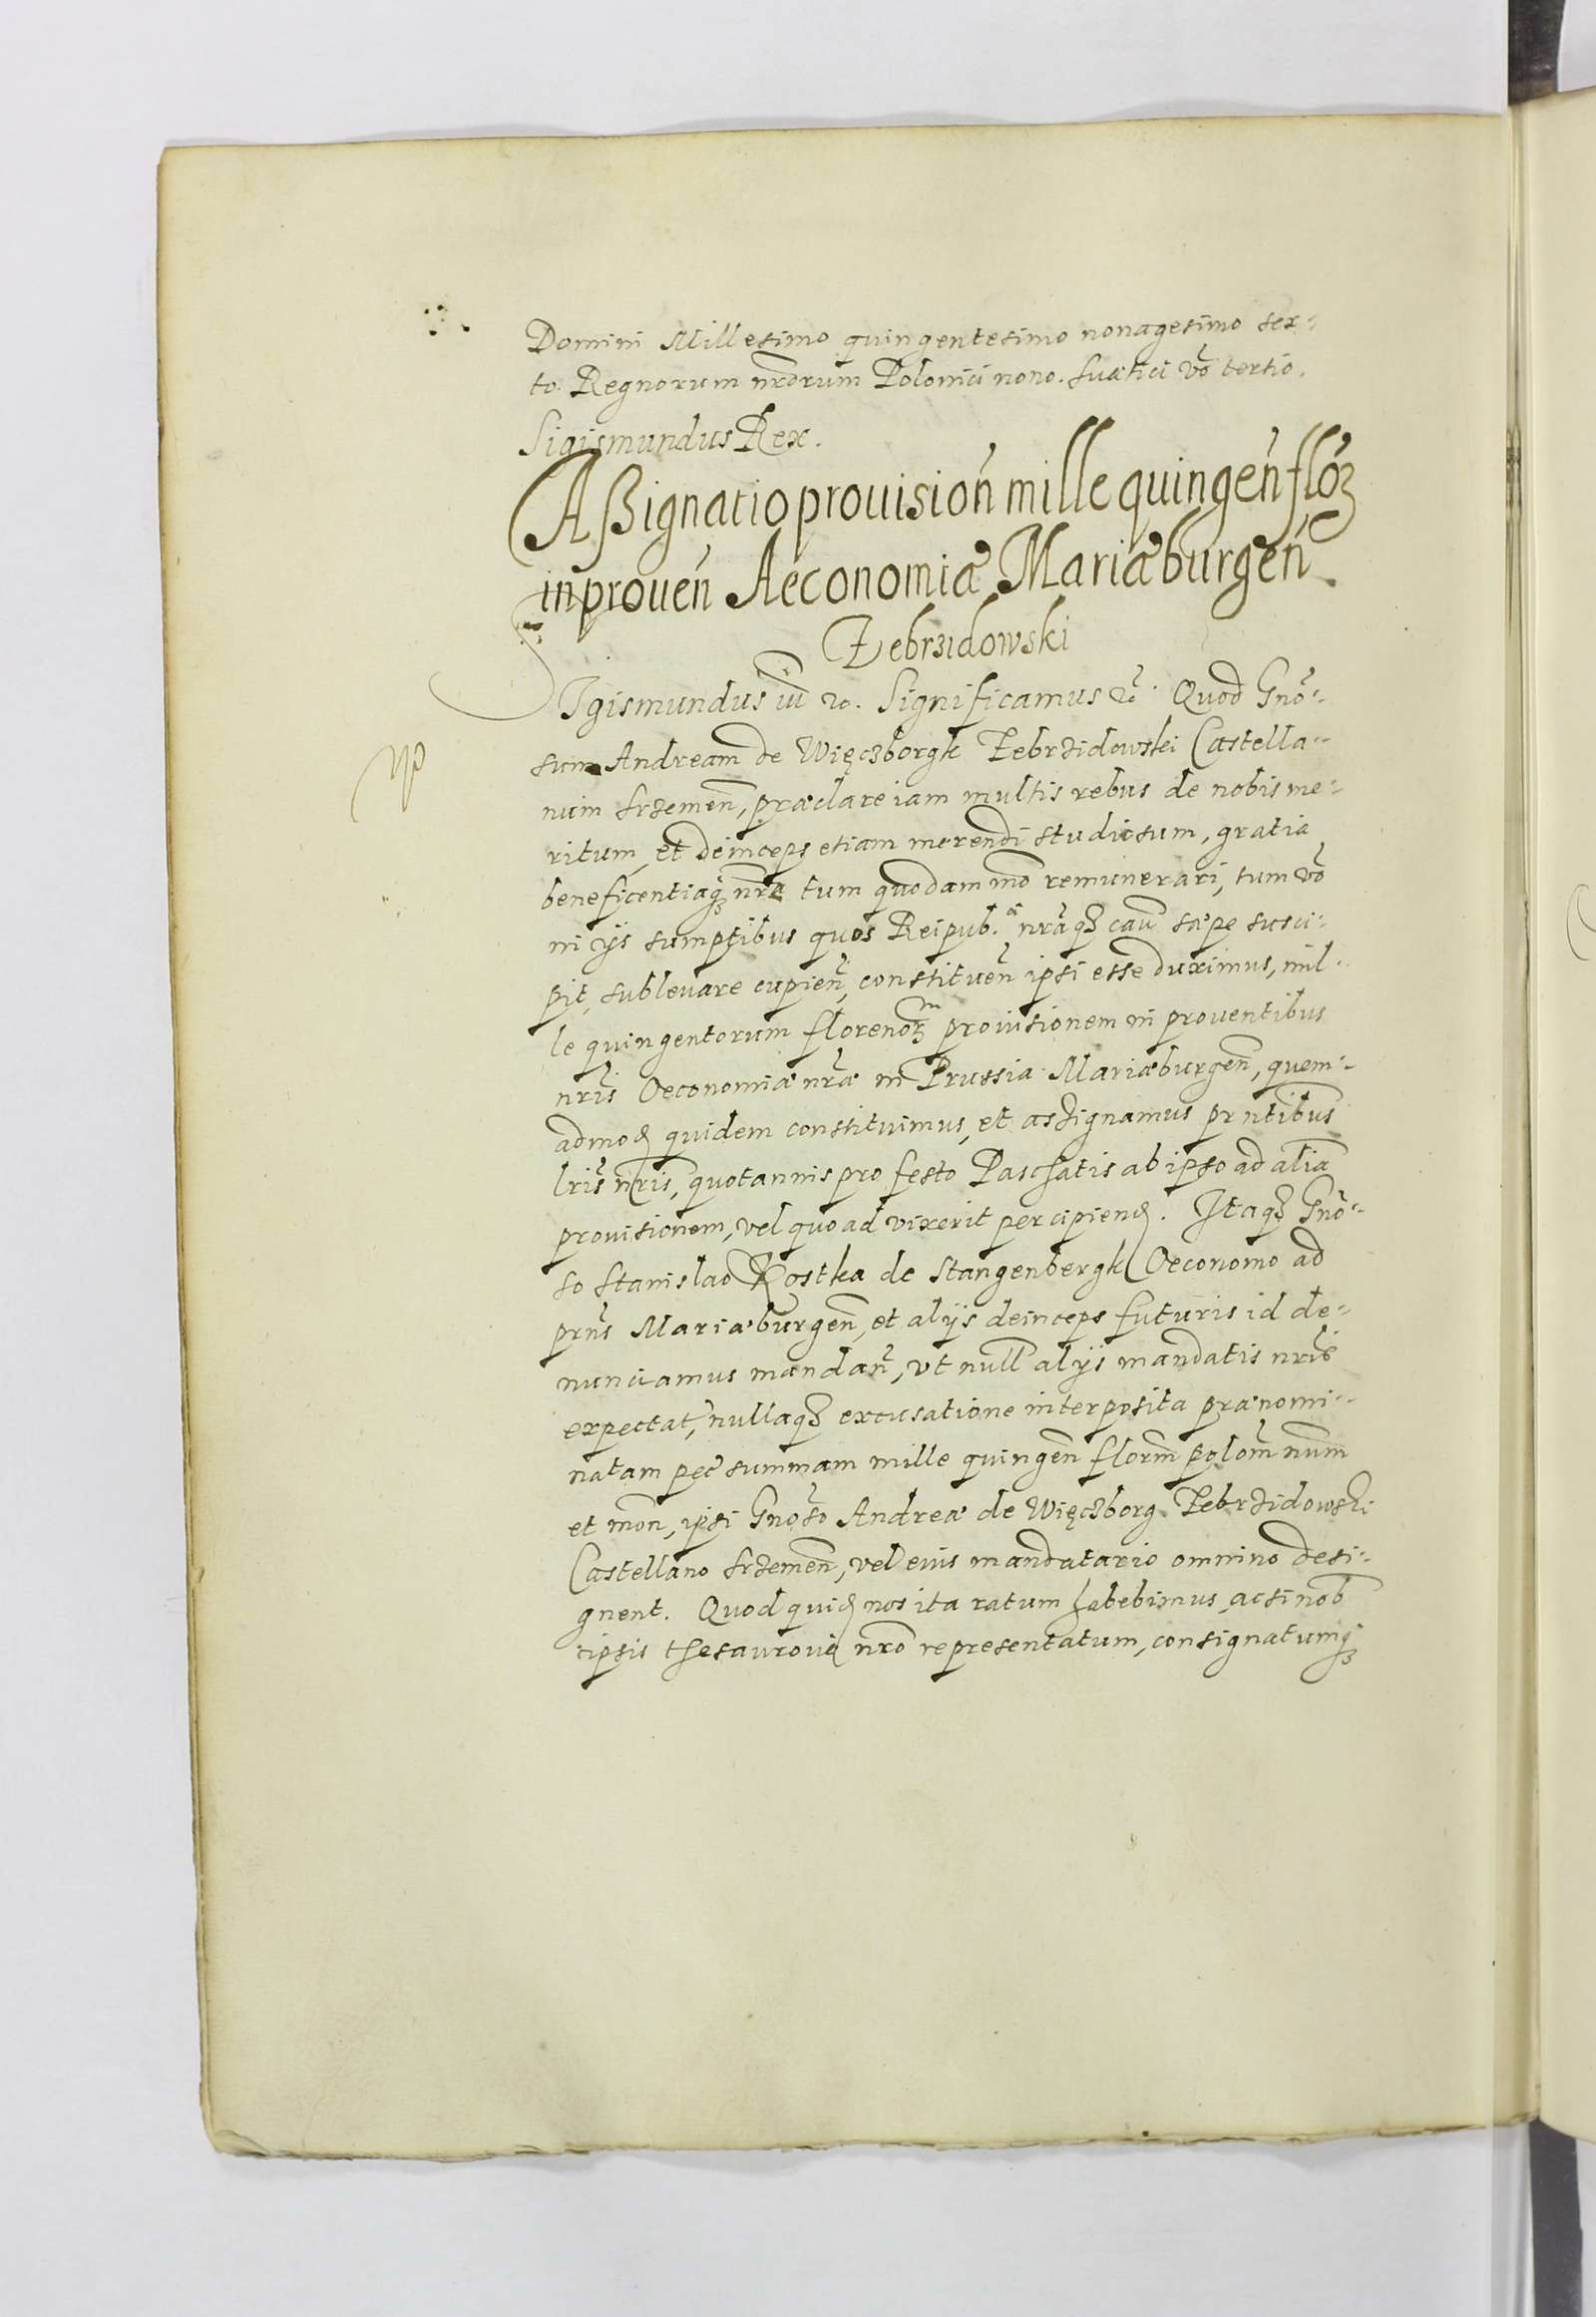 Domini Millesimo quingentesimo nonagesimo sex-
to. Regnorum nrorum Polonici nono. Suetici vo tertio.
Sigismundus Rex.
Aßignatio prouision mille quingen flor
in prouen Aeconomiæ Mariæburgen
Zebrzidowski
Sigismundus iii etc. Significamus etc. Quod Gno-
sum Andream de Więczborgk Zebrzidowski Castella-
num Srzemen, præclare iam multis rebus de nobis me-
ritum, et deinceps etiam merendi studiosum, gratia
beneficentiaq nra tum quodam mo remunerari, tum vo
in ijs sumptibus quos Reipub. nraq cau sæpe susci-
pit, subleuare cupien, constituen ipsi esse duximus, mil-
le quingentorum florenor prouisionem in prouentibus
nris Oeconomiæ nræ in Prussia Mariæburgen, quem-
admod quidem constituimus, et assignamus prntibus
lris nris, quotannis pro festo Paschatis ab ipso ad alia
prouisionem, vel quo ad vixerit percipiend. Itaq Gno-
so Stanislao Kostka de Stangenbergk Oeconomo ad
prns Mariæburgen, et alijs deinceps futuris id de-
nunciamus mandan, vt null alijs mandatis nris
expectat, nullaq excusatione interposita prænomi-
natam pec summam mille quingen florm polom num
et mon, ipsi Gnoso Andreæ de Więczborg Zebrzidowski
Castellano Srzemen, vel eius mandatario omnino desi-
gnent. Quod quid nos ita ratum habebimus, ac si nob
ipsis thesauroue nro representatum, consignatumq